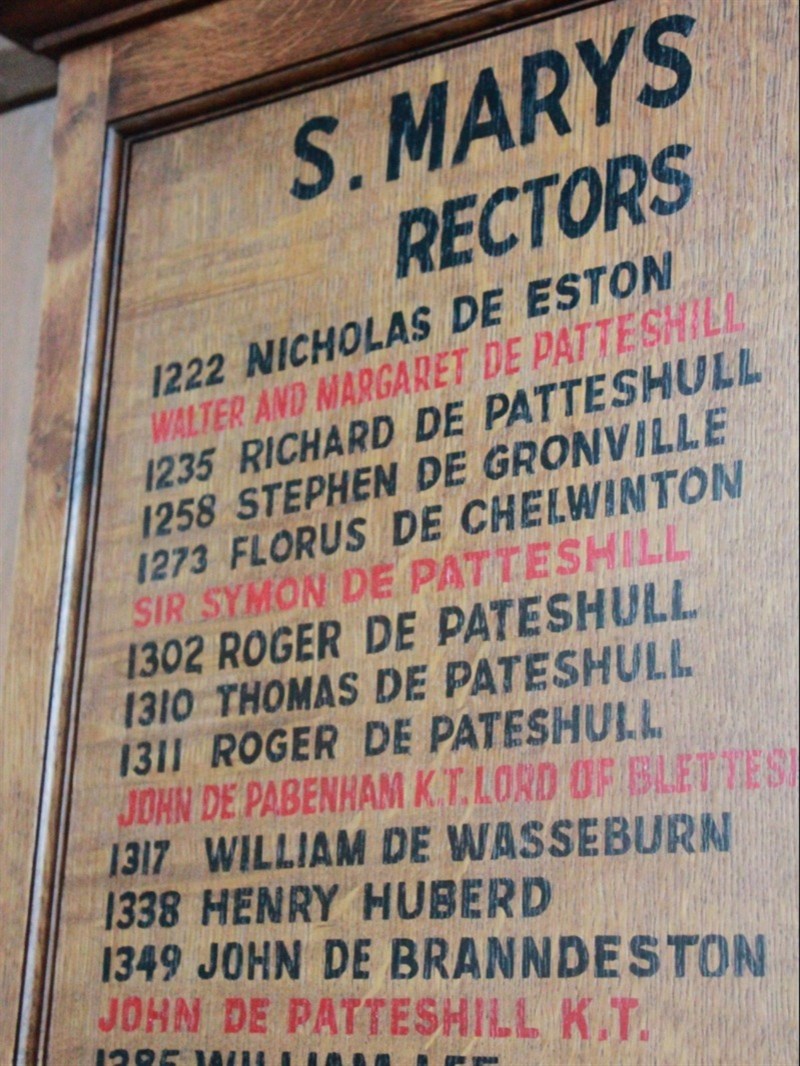 S. MARYS
RECTORS
1222 NICHOLAS DE ESTON
WALTER AND MARGARET DE PATTESHILL
1235 RICHARD DE PATTESHULL
1258 STEPHEN DE GRONVILLE
1273 FLORUS DE CHELWINTON
SIR SYMON DE PATTESHILL
1302 ROGER DE PATESHULL
1310 THOMAS DE PATESHULL
1311 ROGER DE PATESHULL
JOHN DE PABENHAM K.T. LORD OF BLETTES
1317 WILLIAM DE WASSEBURN
1338 HENRY HUBERD
1349 JOHN DE BRANNDESTON
JOHN DE PATTESHILL K.T.
1385 WILLIAM LEE